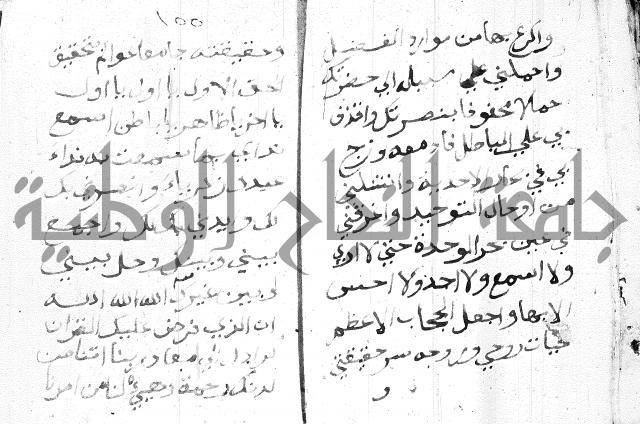 واكرع بها من موارد الفضل
واحملني على سبيله الى حضرتك
حملا محفوفا بنصرتك واقذف
بي على الباطل فادمغه وزج
بي في بحار الاحدية وانشلني
من اوحال التوحيد واغرقني
في عين بحر الوحدة حتى لا ارى
ولا اسمع ولا اجد ولا احس
الا بها واجعل الحجاب الاعظم
حياة روحي وروحه سر حقيقتي
و
١٥٥
وحقيقته جامع عوالمي بتحقيق
الحق الاول يا اول يا
يا اخر يا ظاهر يا باطن اسمع
ندائي بما سمعت به نداء
عبدك زكرياء وانصرني بك
لك وايدني بك لك واجمع
بيني وبينك وحل بيني
وبين غيرك الله الله الله
ان الذي فرض عليك القران
لرادك الى معاد ربنا اتنا من
لدنك رحمة وهيئ لنا من امرنا
جامعة النجاح الوطنية